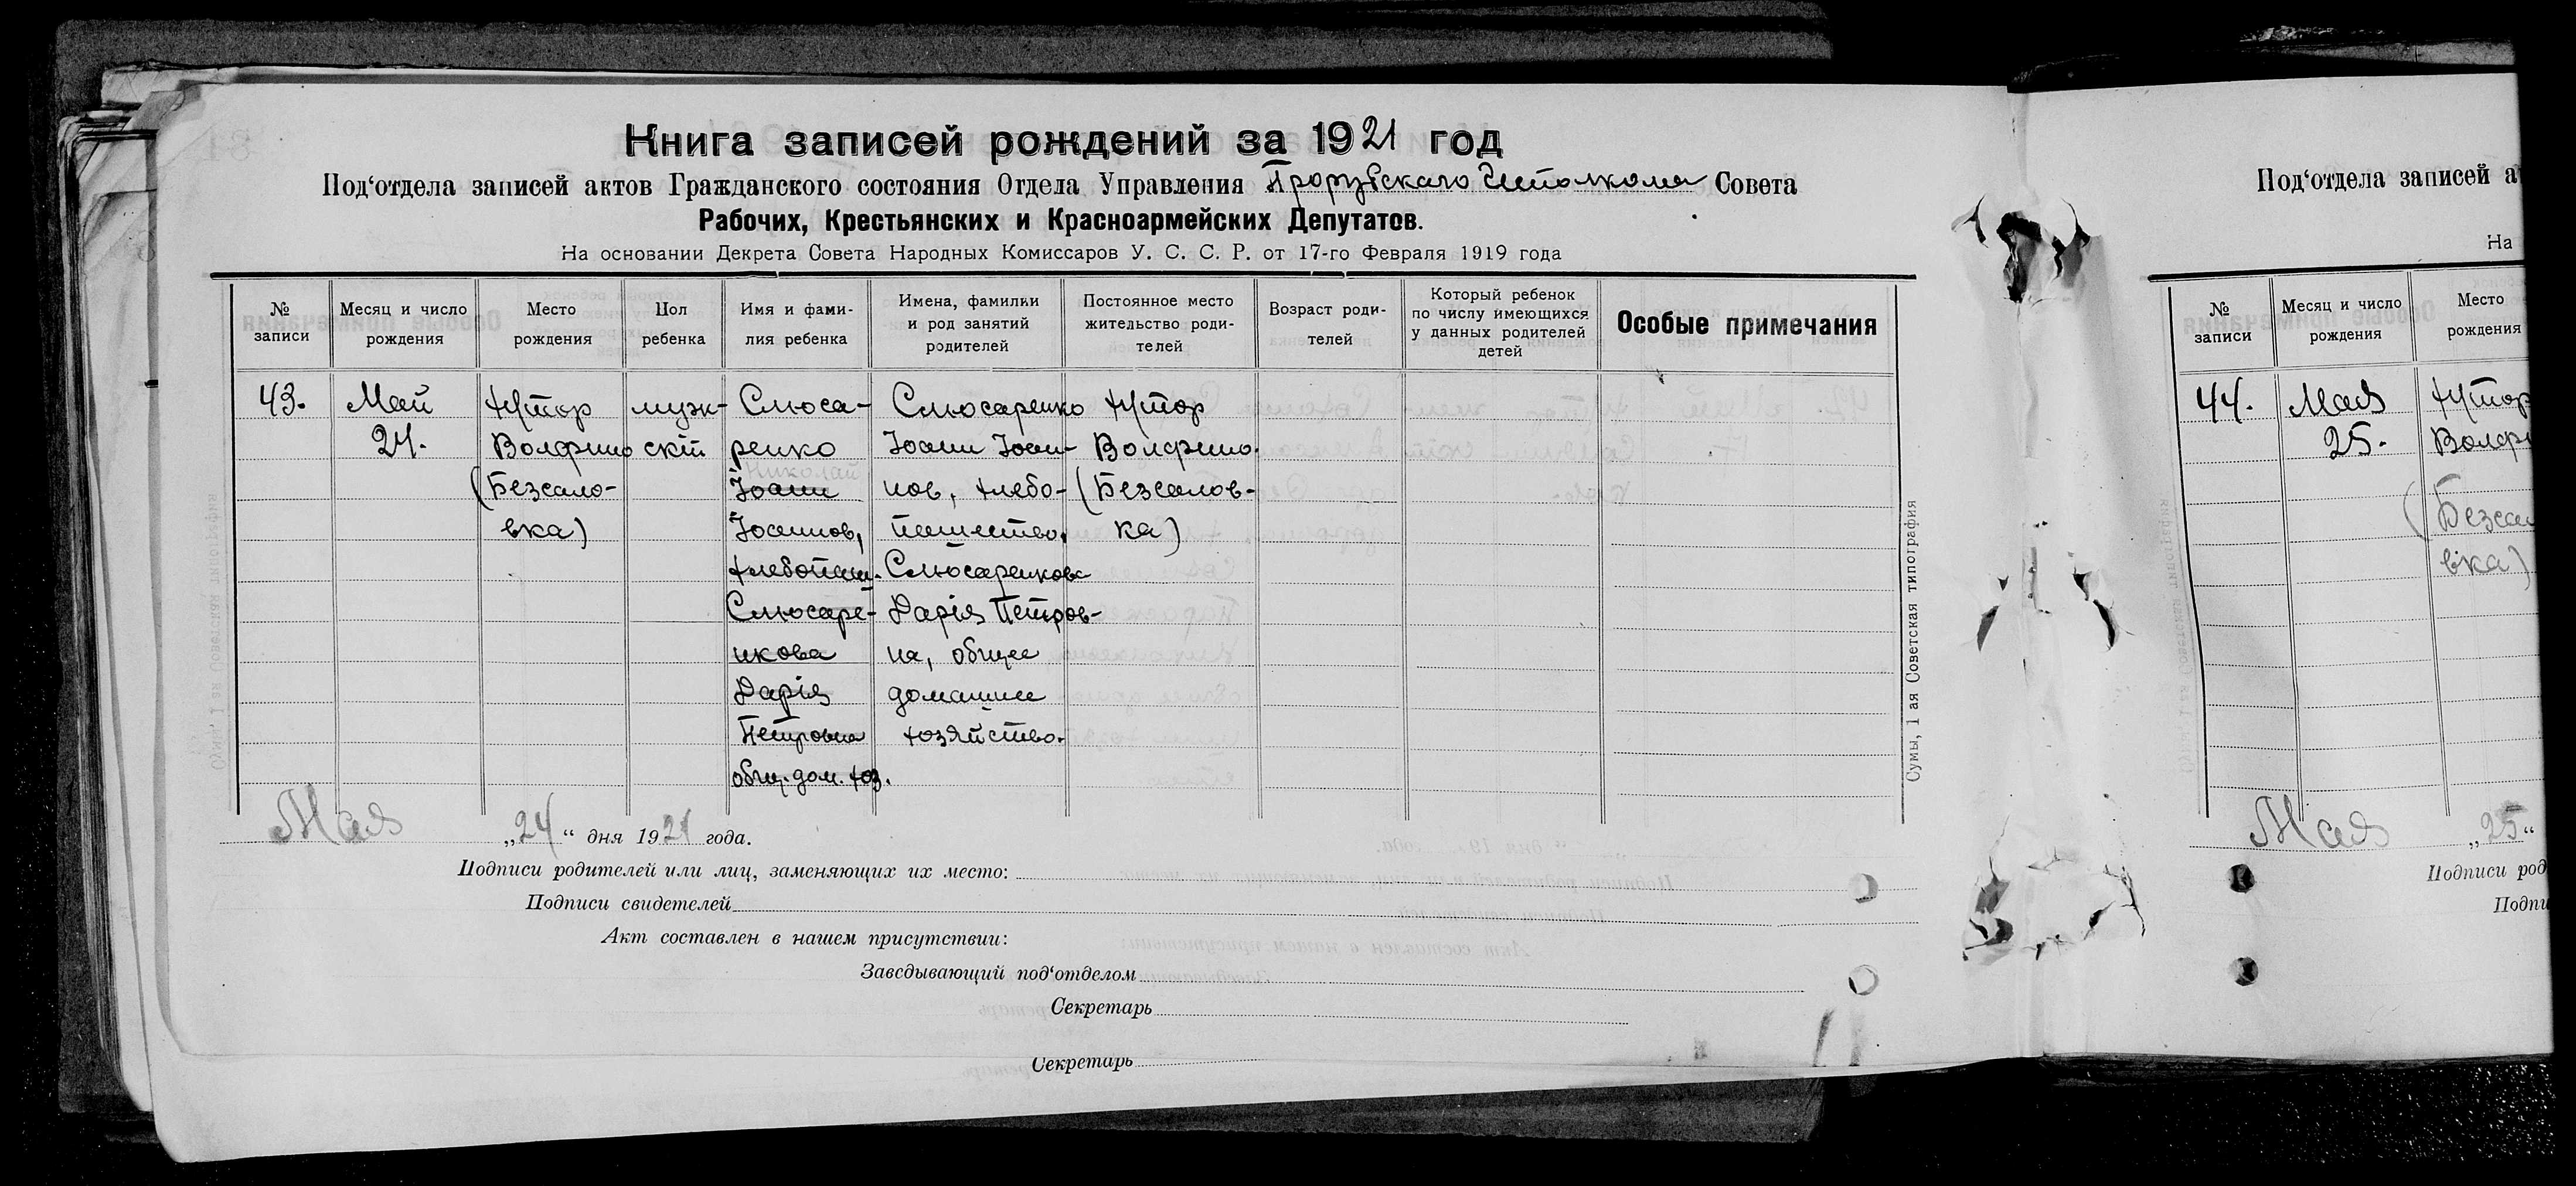 Книга записей рождений за 1921 год
Под‘отдела записей актов Гражданского состояния Отдела Управления Прорубскаго Исполкома Совета
Рабочих, Крестьянских и Красноармейских Депутатов.
На основании Декрета Совета Народных Комиссаров У. С. С. Р. от 17-го Февраля 1919 года
№ записи
Месяц и число рождения
Место рождения
Пол ребенка
Имя и фами-
лия ребенка
Имена, фамилии
и род занятий
родителей
Постоянное место
жительство роди-
телей
Возраст роди-
телей
Который ребенок
по числу имеющихся
у данных родителей
детей
Особые примечания
43.
Май
24.
Хутор
Волфино
(Безсало-
вка)
муж-
скій
Слюса-
ренко
Николай
Іоанн
Іоаннов,
хлебопаш.
Слюсаре-
нкова
Дарія
Петровна
общ. дом. хоз.
Слюсаренко
Іоанн Іоан-
нов, хлебо-
пашество,
Слюсаренкова
Дарія Петров-
на, общее
домашнее
хозяйство.
Хутор
Волфино.
(Безсалов-
ка)
Сумы, 1 ая Советская типография
Мая „24“ дня 1921 года.
Подписи родителей или лиц, заменяющих их место:
Подписи свидетелей
Акт составлен в нашем присутствии:
Заведывающий под‘отделом
Секретарь
Секретарь
Под‘отдела записей а
На
№ записи
Месяц и число рождения
Место рождения
44.
Мая
25.
Хутор
Волфи
(Безсал
вка)
Мая „25“
Подписи род
Подпи